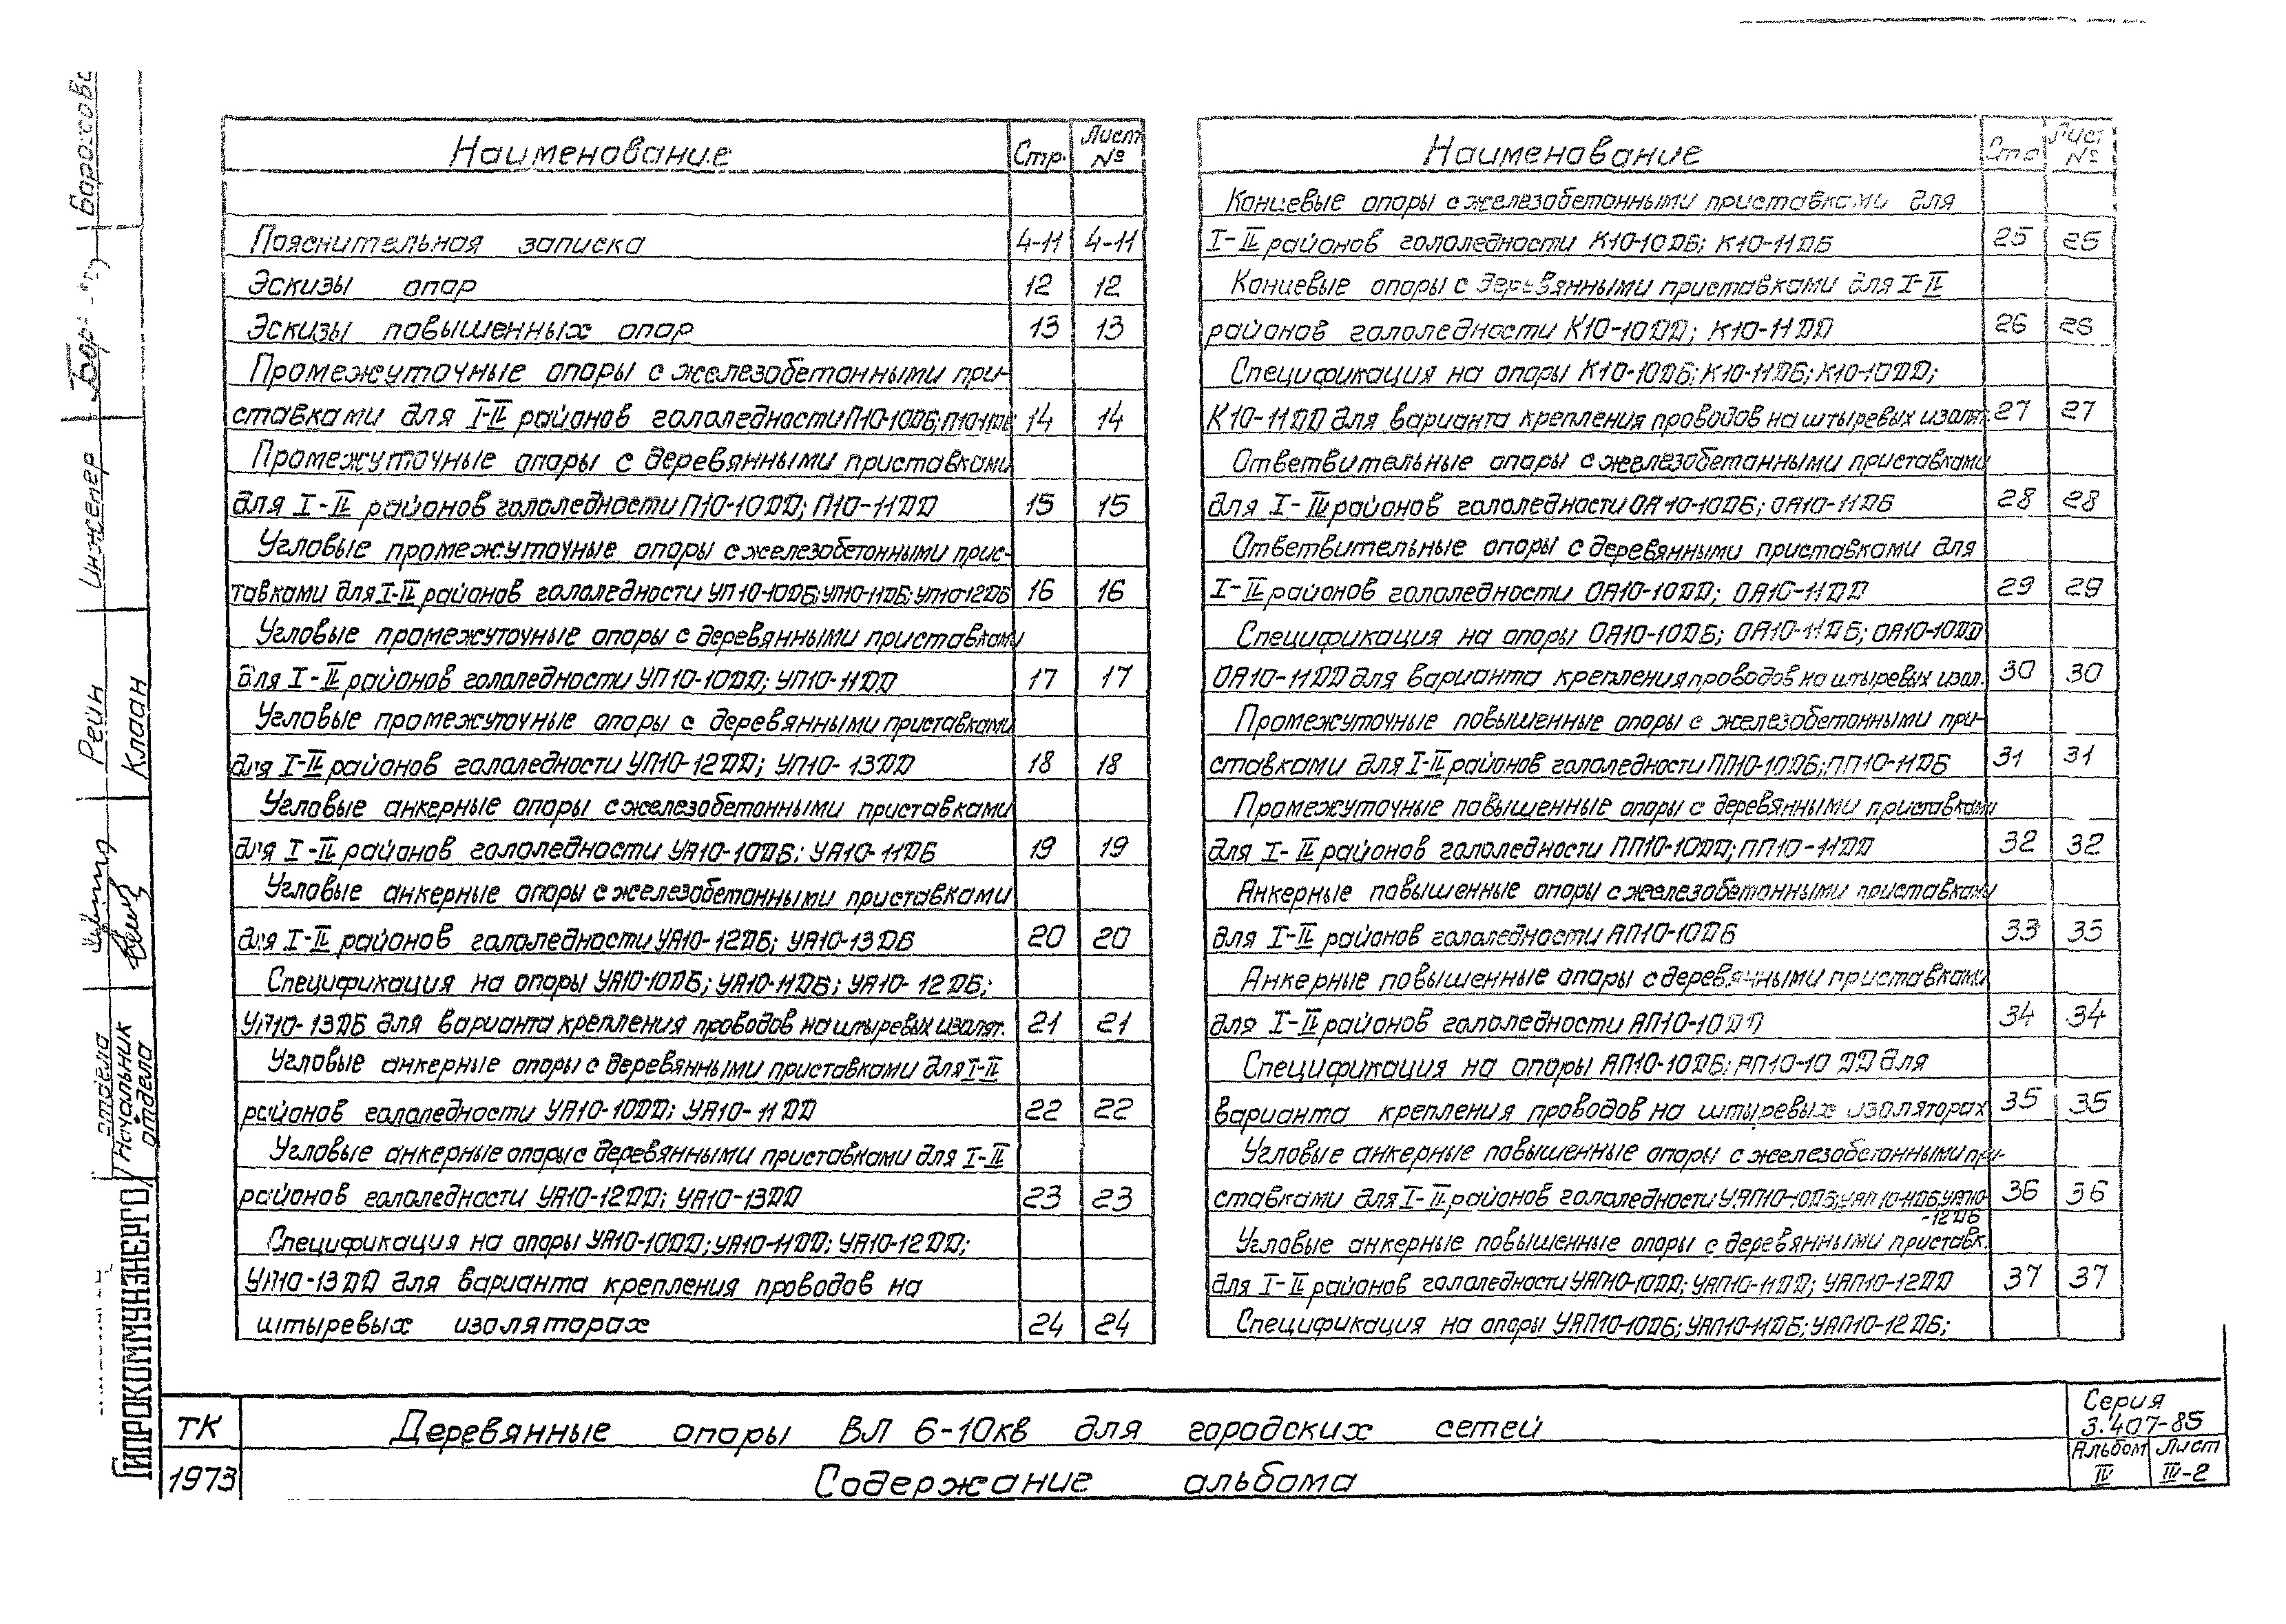 Наименование
Стр.
Лист
№
Пояснительная записка 4-11 4-11
Эскизы опор 12 12
Эскизы повышенных опор 13 13
Промежуточные опоры с железобетонными при-
ставками для I-II районов гололедности П10-10ДБ; П10-11ДБ 14 14
Промежуточные опоры с деревянными приставками
для I-II районов гололедности П10-10ДД; П10-11ДД 15 15
Угловые промежуточные опоры с железобетонными прис-
тавками для I-II районов гололедности УП10-10ДБ; УП10-11ДБ; УП10-12ДБ 16 16
Угловые промежуточные опоры с деревянными приставками
для I-II районов гололедности УП10-10ДД; УП10-11ДД 17 17
Угловые промежуточные опоры с деревянными приставками
для I-II районов гололедности УП10-12ДД; УП10-13ДД 18 18
Угловые анкерные опоры с железобетонными приставками
для I-II районов гололедности УА10-10ДБ; УА10-11ДБ 19 19
Угловые анкерные опоры с железобетонными приставками
для I-II районов гололедности УА10-12ДБ; УА10-13ДБ 20 20
Спецификация на опоры УА10-10ДБ; УА10-11ДБ; УА10-12ДБ;
УА10-13ДБ для варианта крепления проводов на штыревых изолят. 21 21
Угловые анкерные опоры с деревянными приставками для I-II
районов гололедности УА10-10ДД; УА10-11ДД 22 22
Угловые анкерные опоры с деревянными приставками для I-II
районов гололедности УА10-12ДД; УА10-13ДД 23 23
Спецификация на опоры УА10-10ДД; УА10-11ДД; УА10-12ДД;
УА10-13ДД для варианта крепления проводов на
штыревых изоляторах 24 24
Наименование
Стр
Лист
№
Концевые опоры с железобетонными приставками для
I-II районов гололедности К10-10ДБ; К10-11ДБ 25 25
Концевые опоры с деревянными приставками для I-II
районов гололедности К10-10ДД; К10-11ДД 26 26
Спецификация на опоры К10-10ДБ; К10-11ДБ; К10-10ДД;
К10-11ДД для варианта крепления проводов на штыревых изолят. 27 27
Ответвительные опоры с железобетонными приставками
для I-II районов гололедности ОА10-10ДБ; ОА10-11ДБ 28 28
Ответвительные опоры с деревянными приставками для
I-II районов гололедности ОА10-10ДД; ОА10-11ДД 29 29
Спецификация на опоры ОА10-10ДБ; ОА10-11ДБ; ОА10-10ДД
ОА10-11ДД для варианта крепления проводов на штыревых изол. 30 30
Промежуточные повышенные опоры с железобетонными при-
ставками для I-II районов гололедности ПП10-10ДБ; ПП10-11ДБ 31 31
Промежуточные повышенные опоры с деревянными приставками
для I-II районов гололедности ПП10-10ДД; ПП10-11ДД 32 32
Анкерные повышенные опоры с железобетонными приставками
для I-II районов гололедности АП10-10ДБ 33 33
Анкерние повышенные опоры с деревянными приставками
для I-II районов гололедности АП10-10ДД 34 34
Спецификация на опоры АП10-10ДБ; АП10-10 ДД для
варианта крепления проводов на штыревых изоляторах 35 35
Угловые анкерные повышенные опоры с железобетонными при-
ставками для I-II районов гололедности УАП10-10ДБ; УАП10-11ДБ; УАП10- 36 36
-12ДБ
Угловые анкерные повышенные опоры с деревянными приставк.
для I-II районов гололедности УАП10-10ДД; УАП10-11ДД; УАП10-12ДД 37 37
Спецификация на опоры УАП10-10ДБ; УАП10-11ДБ; УАП10-12ДБ;
отдела
Рейн
Инженер
Бор
Начальник
отдела
Клаан
ГИПРОКОММУНЭНЕРГО
ТК
1973
Деревянные опоры ВЛ 6-10кв для городских сетей
Содержание альбома
Серия
3.407-85
Альбом
IV
Лист
IV-2